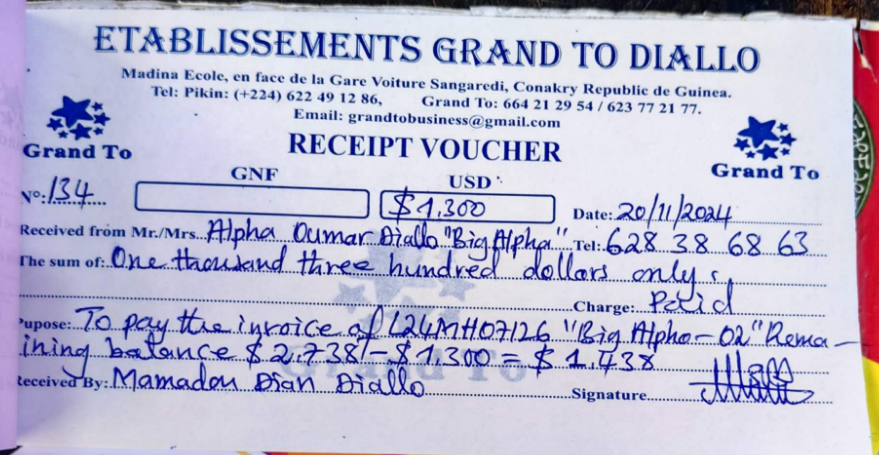 ETABLISSEMENTS GRAND TO DIALLO
Madina Ecole, en face de la Gare Voiture Sangaredi, Conakry Republic de Guinea.
Tel: Pikin: (+224) 622 49 12 86, Grand To: 664 21 29 54 / 623 77 21 77.
Email: grandtobusiness@gmail.com
Grand To
RECEIPT VOUCHER
Grand To
GNF USD
No: 134 $1.300 Date: 20/11/2024
Received from Mr./Mrs. Alpha Oumar Diallo "Big Alpha" Tel: 628 38 68 63
The sum of: One thousand three hundred dollars only
Charge: Paid
Pupose: To pay the invoice of L24MH07126 "Big Alpha - 02" Rema-
ining balance $2.738 - $1.300 = $1.438
Received By: Mamadou Dian Diallo Signature
Grand To